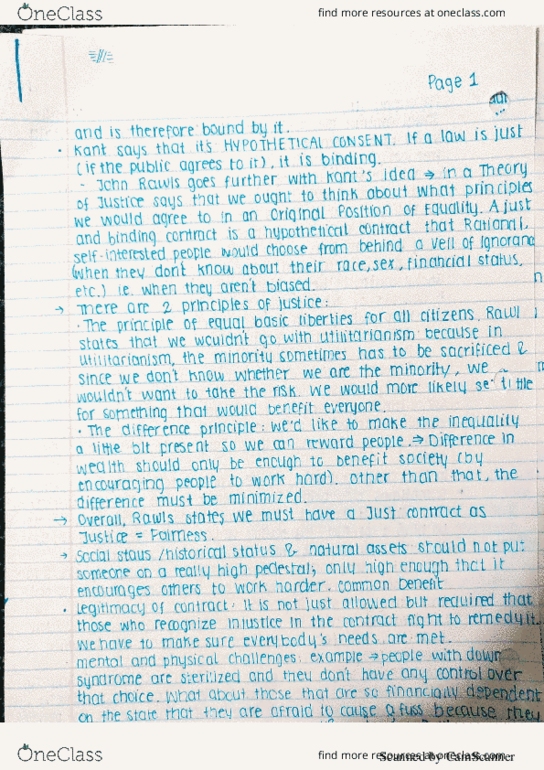 OneClass
find more resources at oneclass.com
Page 1
and is therefore bound by it.
• Kant says that it's HYPOTHETICAL CONSENT. If a law is just
(if the public agrees to it), it is binding.
- John Rawls goes further with Kant's idea → in a Theory
of Justice says that we ought to think about what principles
we would agree to in an Original Position of Equality. A just
and binding contract is a hypothetical contract that Rational,
self-interested people would choose from behind a veil of Ignoranc
(when they dont know about their race, sex, financial status,
etc.) i.e. when they aren't biased.
→ There are 2 principles of justice:
• The principle of equal basic liberties for all citizens. Rawl
states that we wouldn't go with utilitarianism because in
utilitarianism, the minority sometimes has to be sacrificed &
since we don't know whether we are the minority, we
wouldn't want to take the risk. We would more likely settle
for something that would benefit everyone.
• The difference principle: we'd like to make the inequality
a little bit present so we can reward people. ⇒ Difference in
wealth should only be enough to benefit society (by
encouraging people to work hard). other than that, the
difference must be minimized.
→ Overall, Rawls states we must have a Just contract as
Justice = Fairness.
→ Social staus /historical status & natural assets should not put
someone on a really high pedestal; only high enough that it
encourages others to work harder. common benefit
• Legitimacy of contract: It is not just allowed but required that
those who recognize injustice in the contract fight to remedy it.
We have to make sure everybody's needs are met.
mental and physical challenges: example → people with down
syndrome are sterilized and they don't have any control over
that choice. What about those that are so financially dependent
on the state that they are afraid to cause a fuss because they
OneClass
find more resources at oneclass.com
Scanned by CamScanner